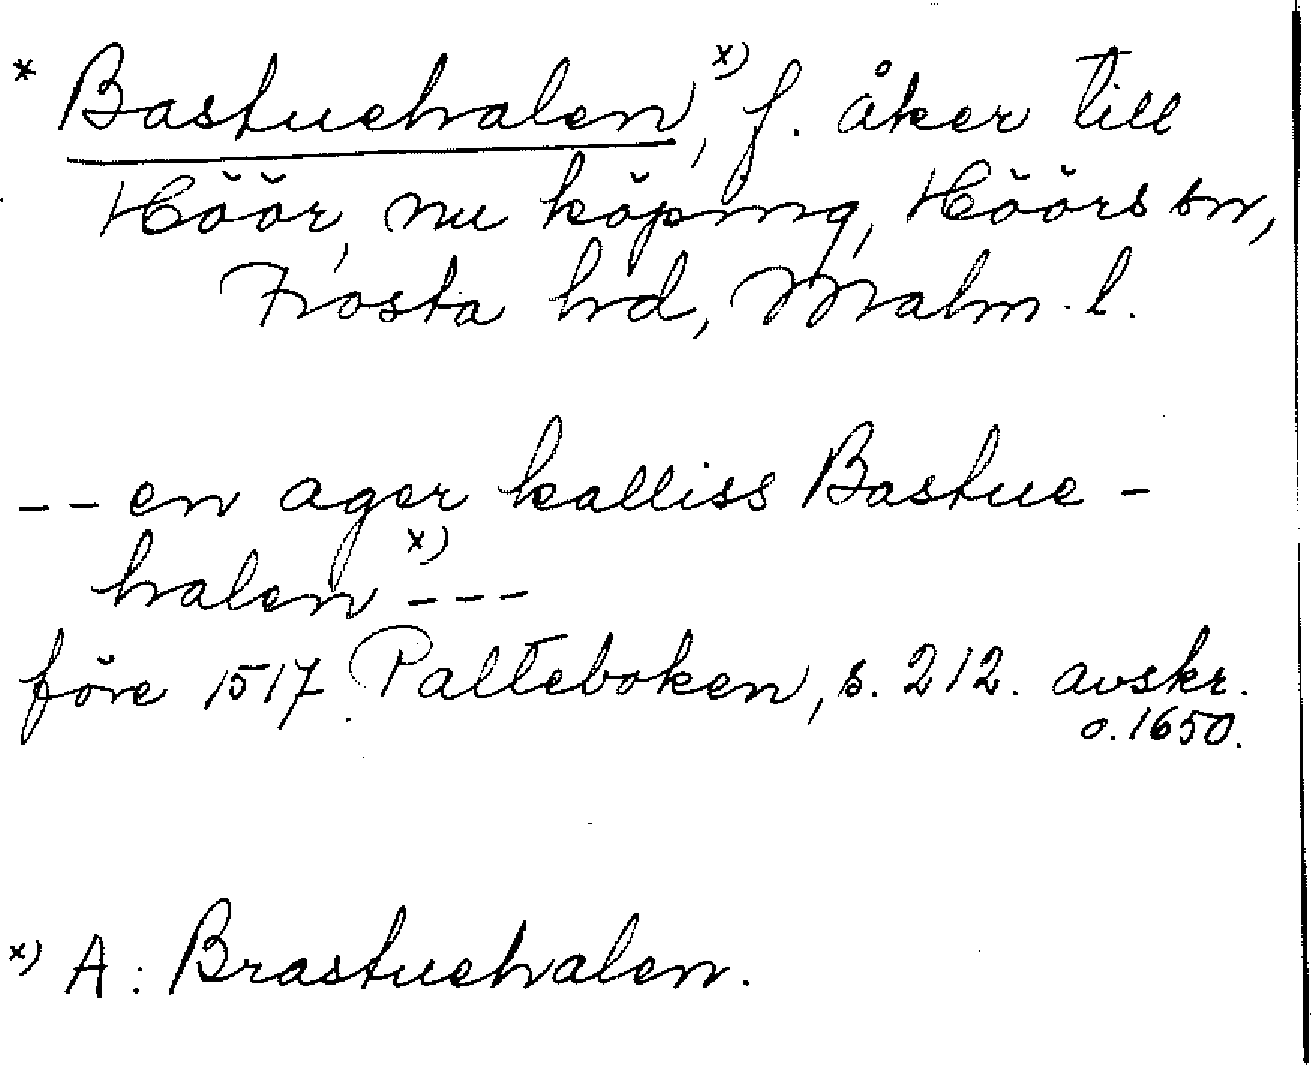 * Bastuehalen, x) f. åker till
Höör, nu köping, Höörs sn,
Frosta hd, Malm. l.
-- en ager kalliss Bastue-
halen x) ---
före 1517. Palteboken, s. 212. avskr.
o. 1650.
x) A: Brastuehalen.